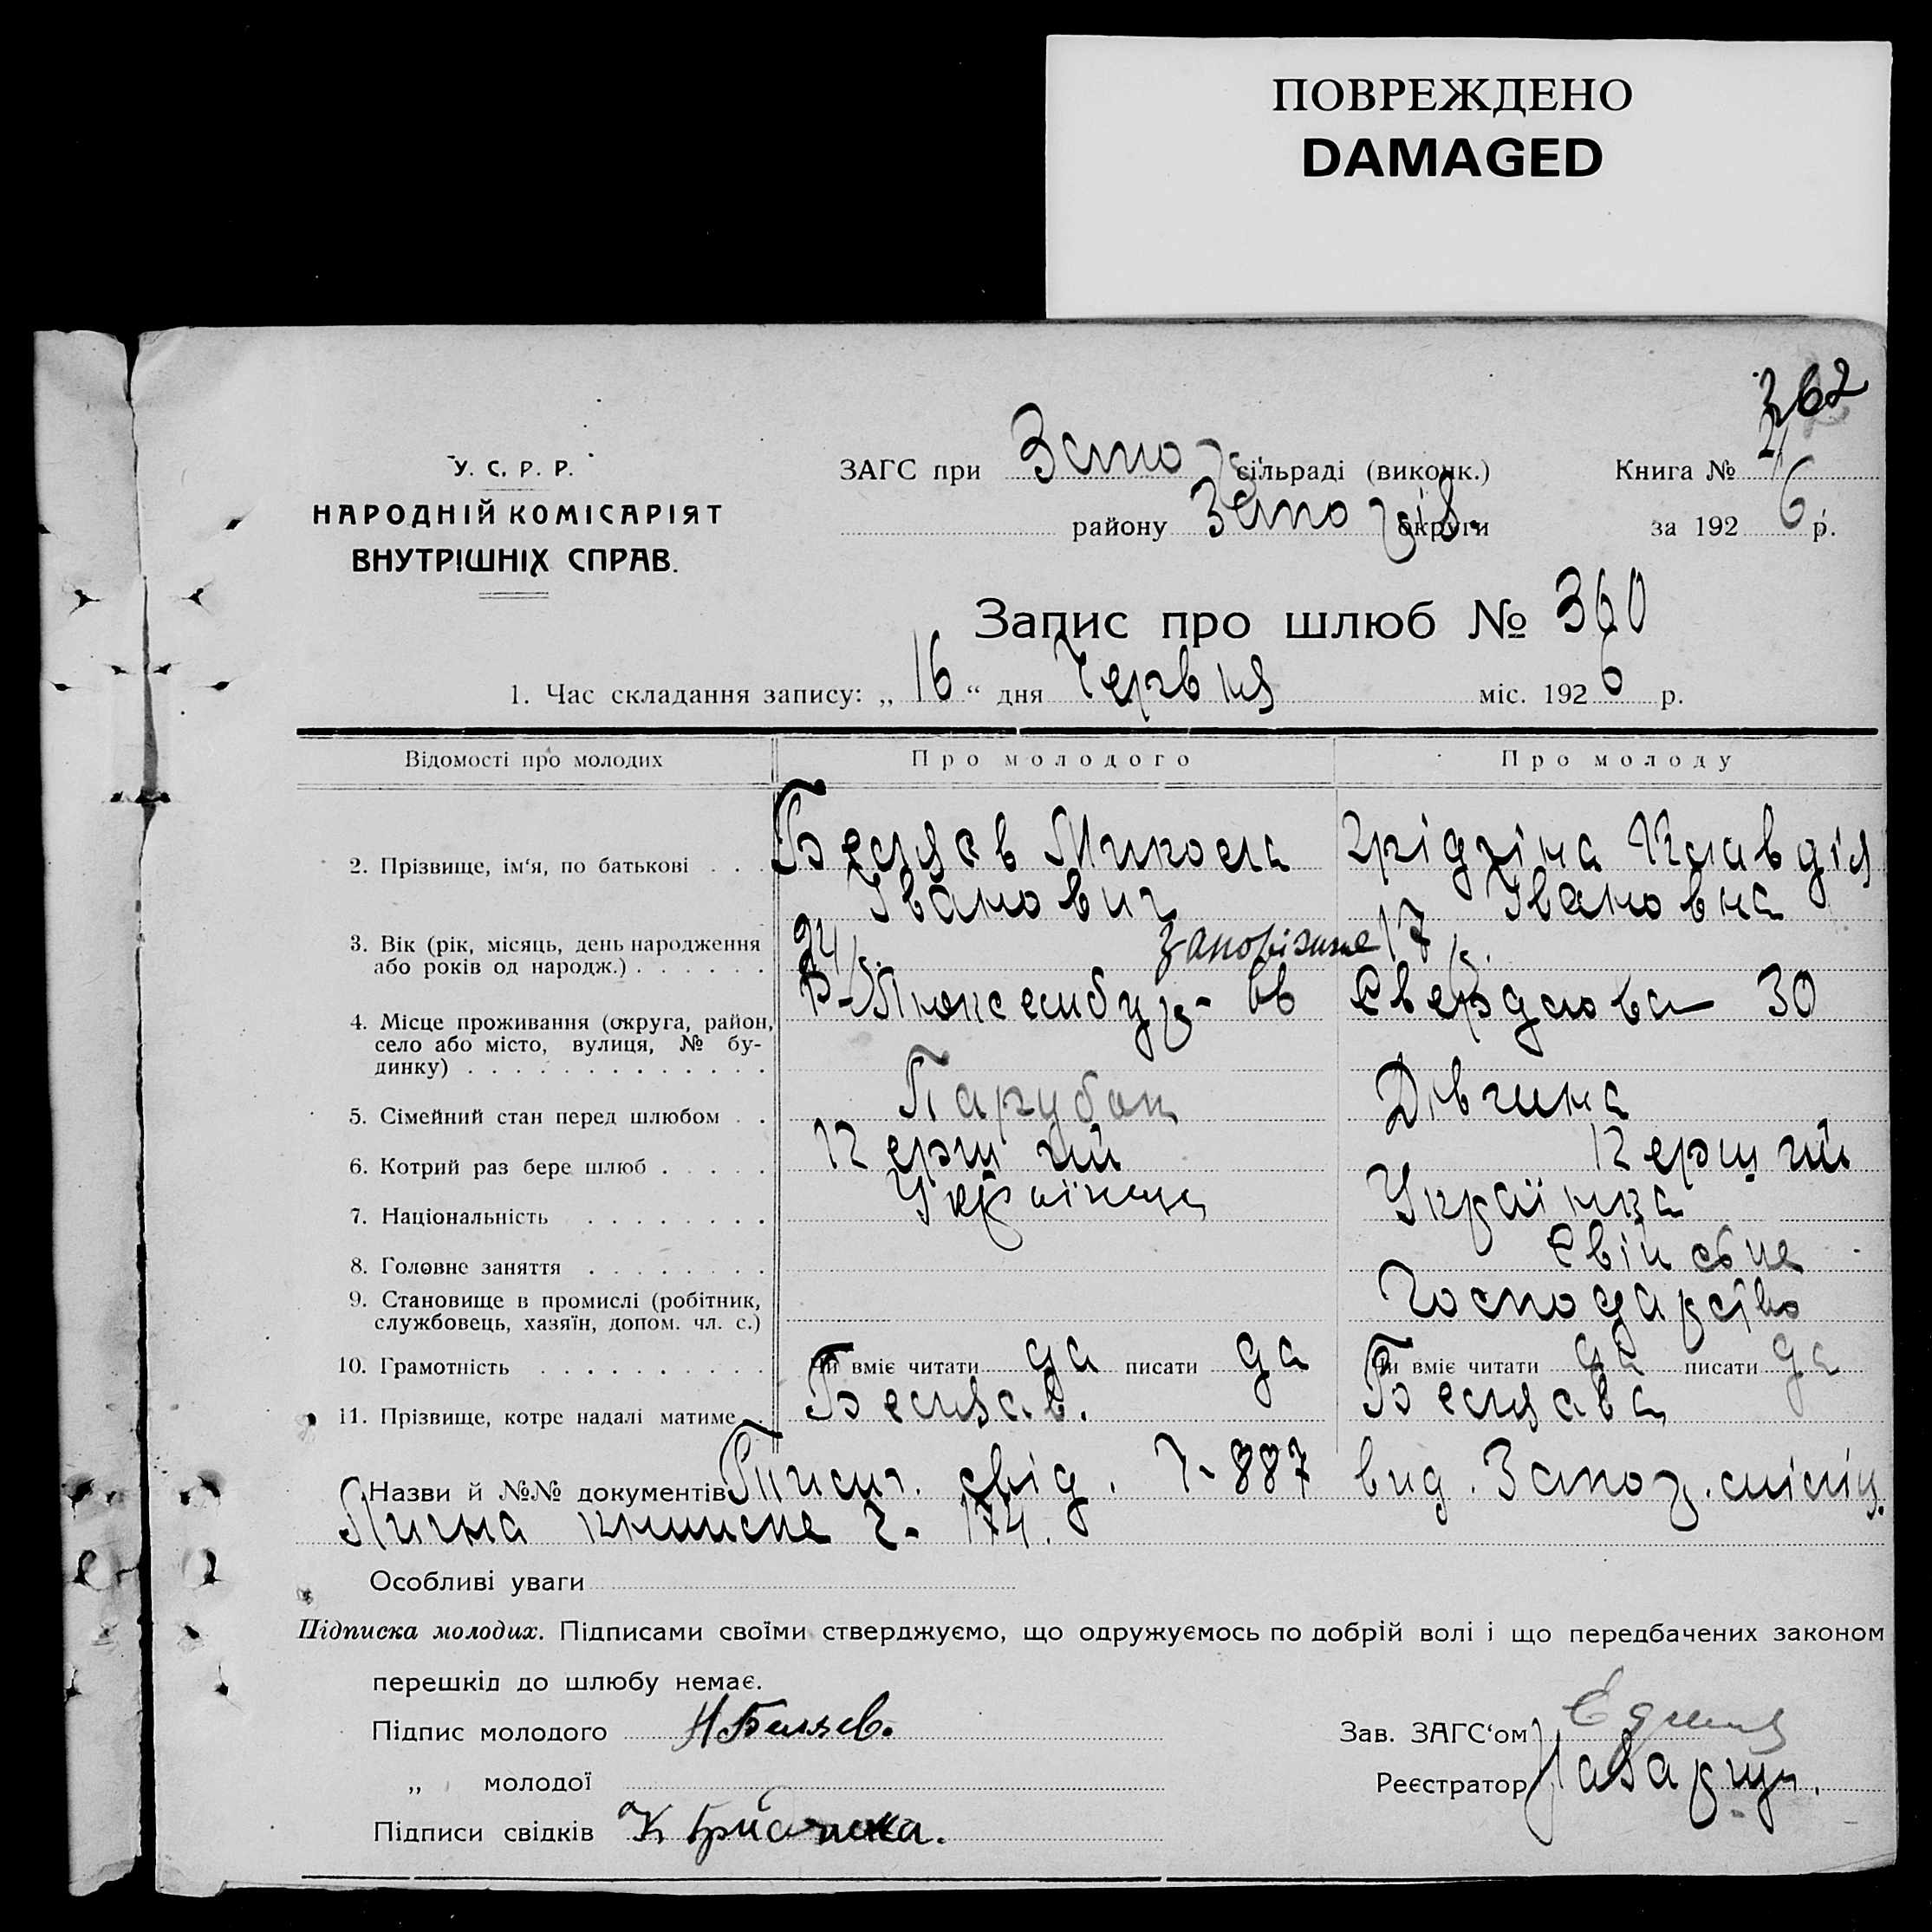 ПОВРЕЖДЕНО
DAMAGED
362
У. С. Р. Р.
НАРОДНІЙ КОМІСАРІЯТ
ВНУТРІШНІХ СПРАВ.
ЗАГС при Запо сільраді (виконк.) Книга №
району округи за 1926 р.
Запис про шлюб № 360
1. Час складання запису: „ 16 “ дня Червня міс. 1926 р.
Відомості про молодих Про молодого Про молоду
2. Прізвище, ім‘я, по батькові . . . Беляєв Микола Грідчіна Клавдія
Іванович Івановна
3. Вік (рік, місяць, день народження
або років од народж.) . . . . . . 24 р. Запоріжже 17 р.
4. Місце проживання (округа, район,
село або місто, вулиця, № бу-
динку) . . . . . . . . . . . . . Р-Люксембург- Свердлова 30
5. Сімейний стан перед шлюбом . . Парубок Дівчина
6. Котрий раз бере шлюб . . . . . Перший Перший
7. Національність . . . . . . . . Українець Українка
8. Головне заняття . . . . . . . .
9. Становище в промислі (робітник,
службовець, хазяїн, допом. чл. с.) Господарство
10. Грамотність . . . . . . . . . . Чи вміє читати да писати да Чи вміє читати да писати да
11. Прізвище, котре надалі матиме . . Беляєв. Беляєва
Назви й №№ документів свід. Ч-887 вид. Запор.
Лична книжка Ч- 174.
Особливі уваги
Підписка молодих. Підписами своїми стверджуємо, що одружуємось по добрій волі і що передбачених законом
перешкід до шлюбу немає.
Підпис молодого Н Беляев. Зав. ЗАГС‘ом
„ молодої Реєстратор
Підписи свідків К